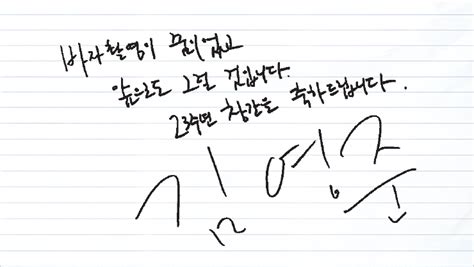 바자촬영이 꿈이었고
앞으로도 그럴 것입니다.
23주년 창간을 축하드립니다.